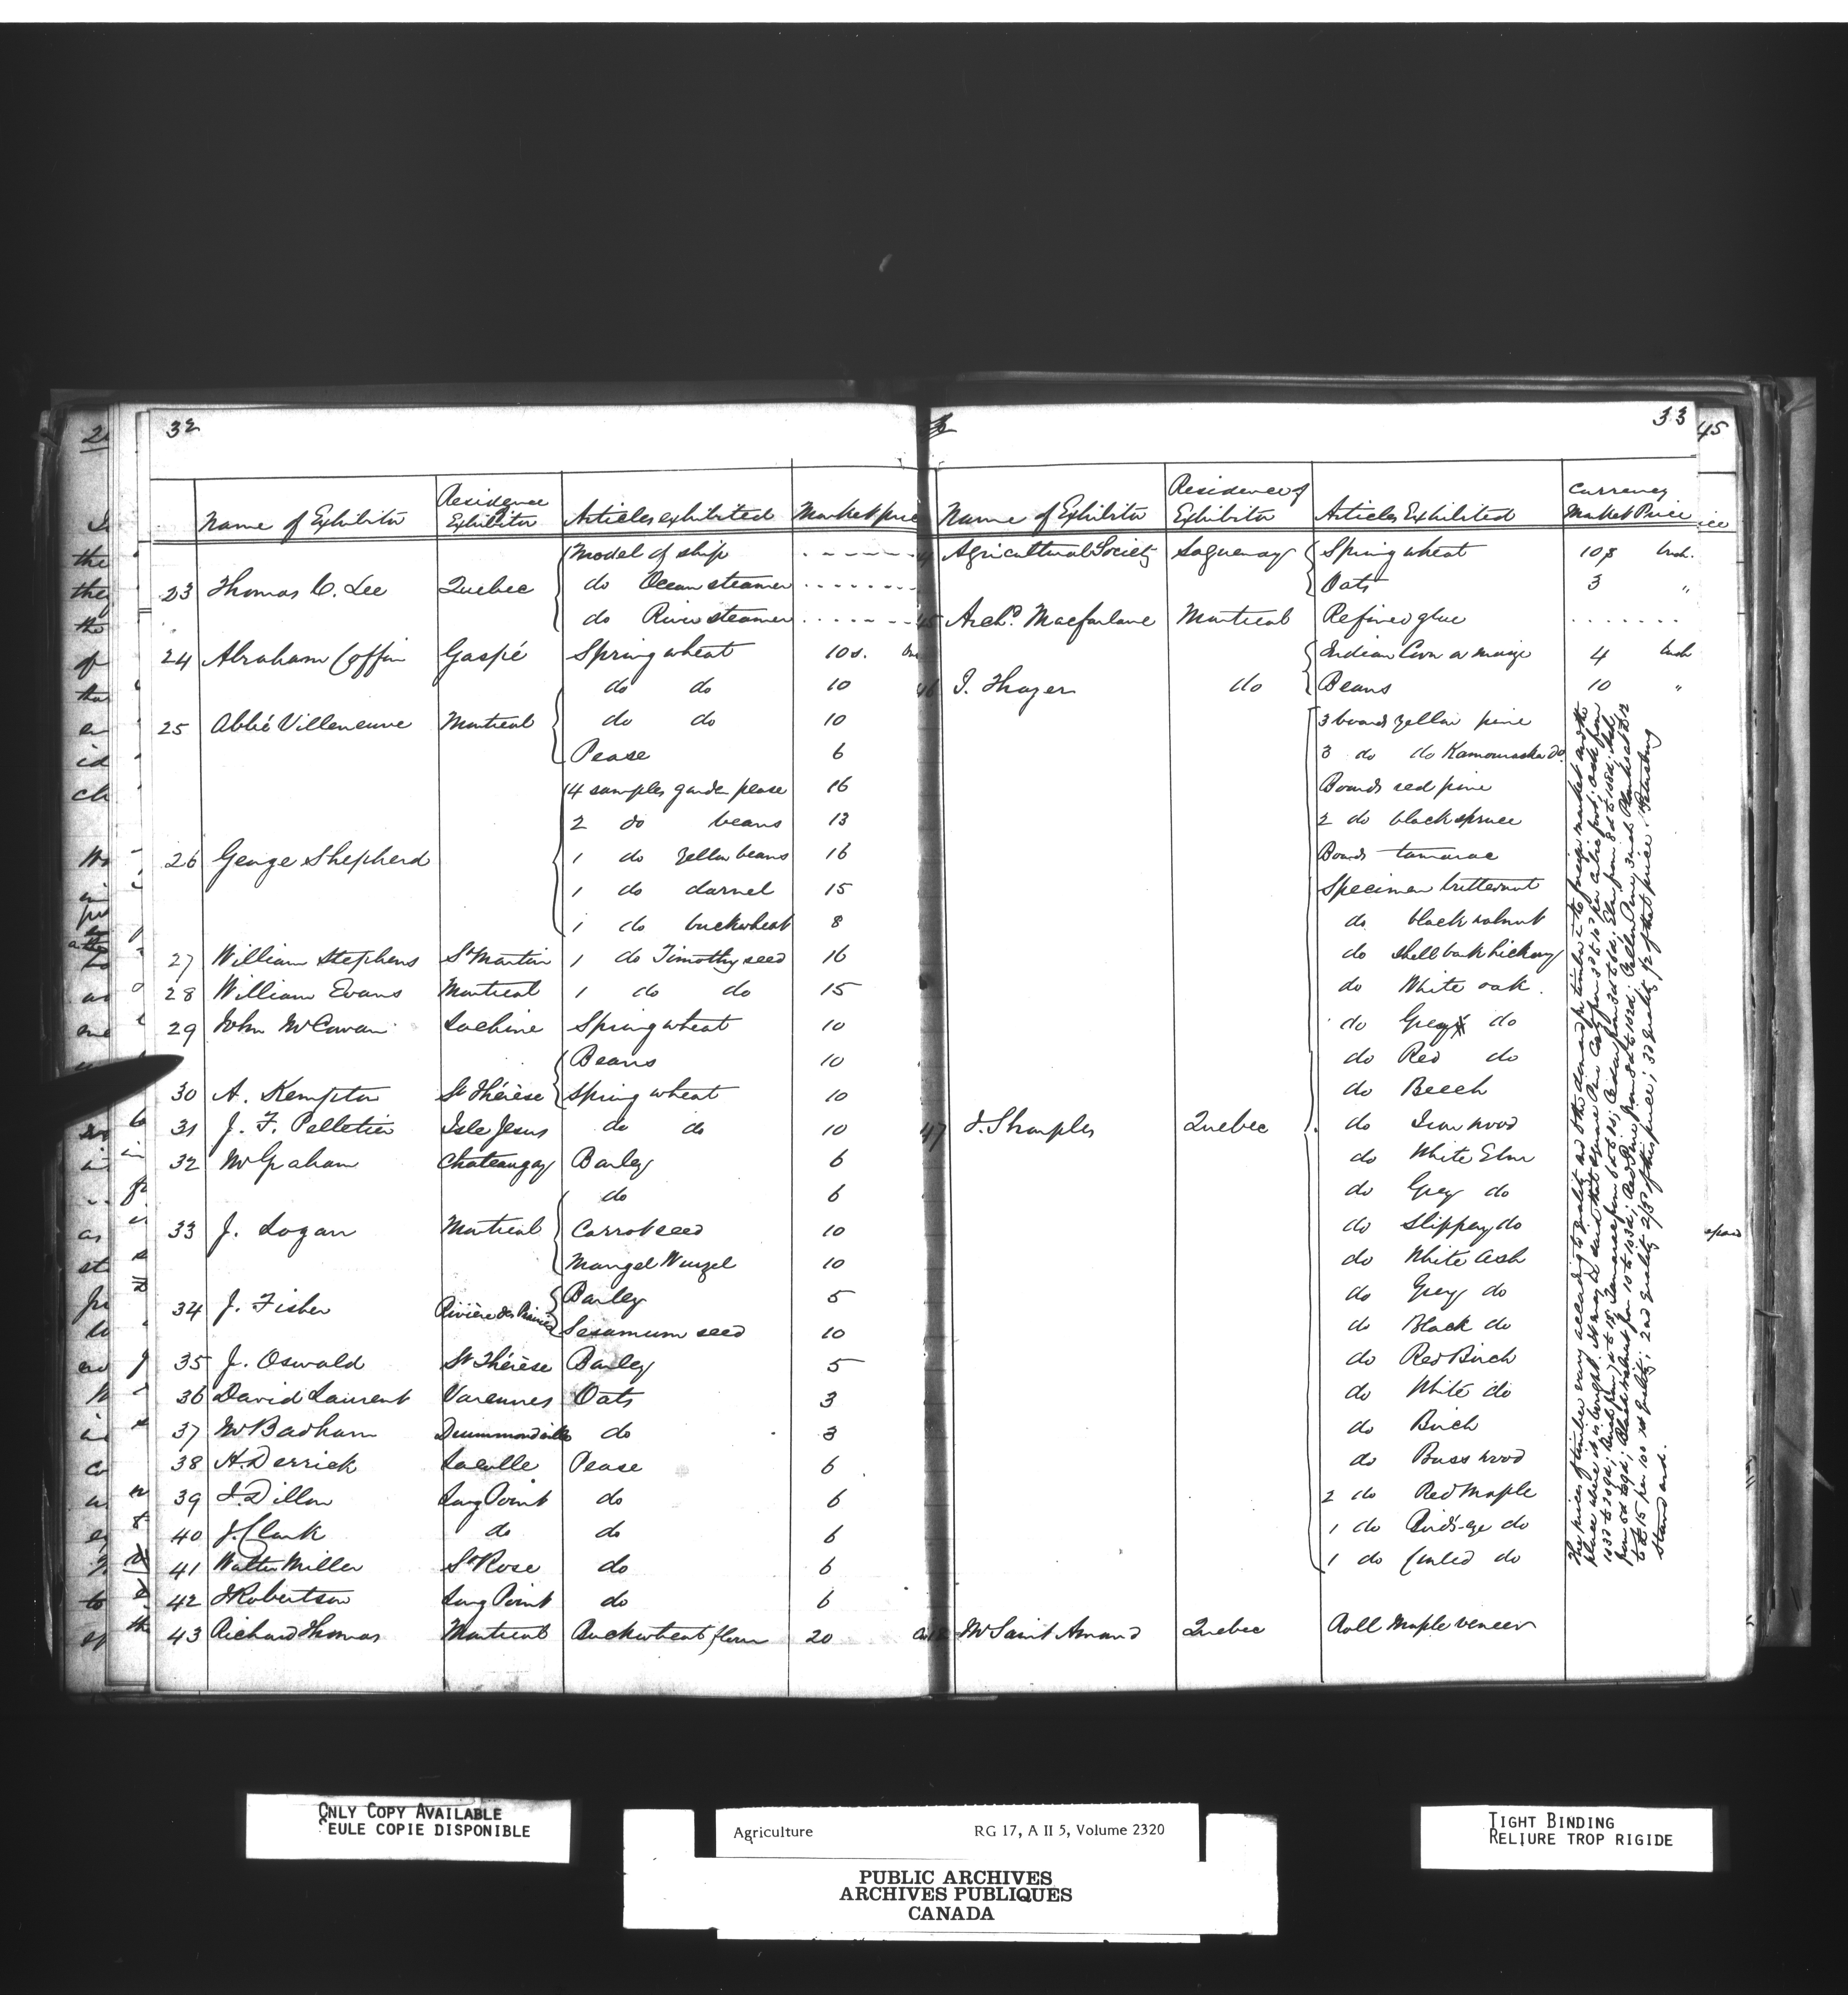 32
Name of Exhibitor Residence Exhibitor Articles exhibited Market price
Model of ship
23 Thomas C. Lee Quebec do Ocean steamer
do River steamer
24 Abraham Coffin Gaspé Spring wheat 10s.
do do 10
25 Abbé Villeneuve Montreal do do 10
Pease 6
14 samples garden pease 16
2 do beans 13
26 George Shepherd 1 do Yellow beans 16
1 do darnel 15
1 do buckwheat 8
27 William Stephens St Martin 1 do Timothy seed 16
28 William Evans Montreal 1 do do 15
29 John McCowan Lachine Spring wheat 10
Beans 10
30 A. Kempton St Thérèse Spring wheat 10
31 J. F. Pelletier Isle Jesus do do 10
32 Mr Graham Chateaugay Barley 6
do 6
33 J. Logan Montreal Carrot seed 10
Mangel Wurzel 10
34 J. Fisher Rivière des Prairies Barley 5
Sesamum seed 10
35 J. Oswald St Thérèse Barley 5
36 David Laurent Varennes Oats 3
37 Mr Badham Drummondville do 3
38 H. Derrick Lacolle Pease 6
39 J. Dillon Long Point do 6
40 J. Clark do do 6
41 Walter Miller St Rose do 6
42 J Robertson Long Point do 6
43 Richard Thomas Montreal Buckwheat flour 20
33
Name of Exhibitor Residence of Exhibitor Articles Exhibited Currency Market Price
Agricultural Society Saguenay Spring wheat 10s bush.
Oats 3 "
45 Archd. Macfarlane Montreal Refined glue
Indian Corn or maize 4 bush
46 J. Thayer do Beans 10 "
3 boards yellow pine
3 do do Kamouraska do
Boards red pine
2 do black spruce
Boards tamarac
Specimen butternut
do black walnut
do shell bark hickory
do White oak.
do Grey do
do Red do
do Beech
47 J. Sharples Quebec do Iron wood
do White Elm
do Grey do
do Slippery do
do White ash
do Grey do
do Black do
do Red Birch
do White do
do Birch
do Bass wood
2 do Red Maple
1 do Bird's-eye do
1 do Curled do
Mr Saint Amand Quebec Roll Maple veneer
The prices of timber vary according to quality and to the demand for timber in the foreign market and the
place where it is bought. It may be said that square Pine
Standard.
45
ONLY COPY AVAILABLE
EULE COPIE DISPONIBLE
Agriculture RG 17, A II 5, Volume 2320
PUBLIC ARCHIVES
ARCHIVES PUBLIQUES
CANADA
TIGHT BINDING
RELIURE TROP RIGIDE